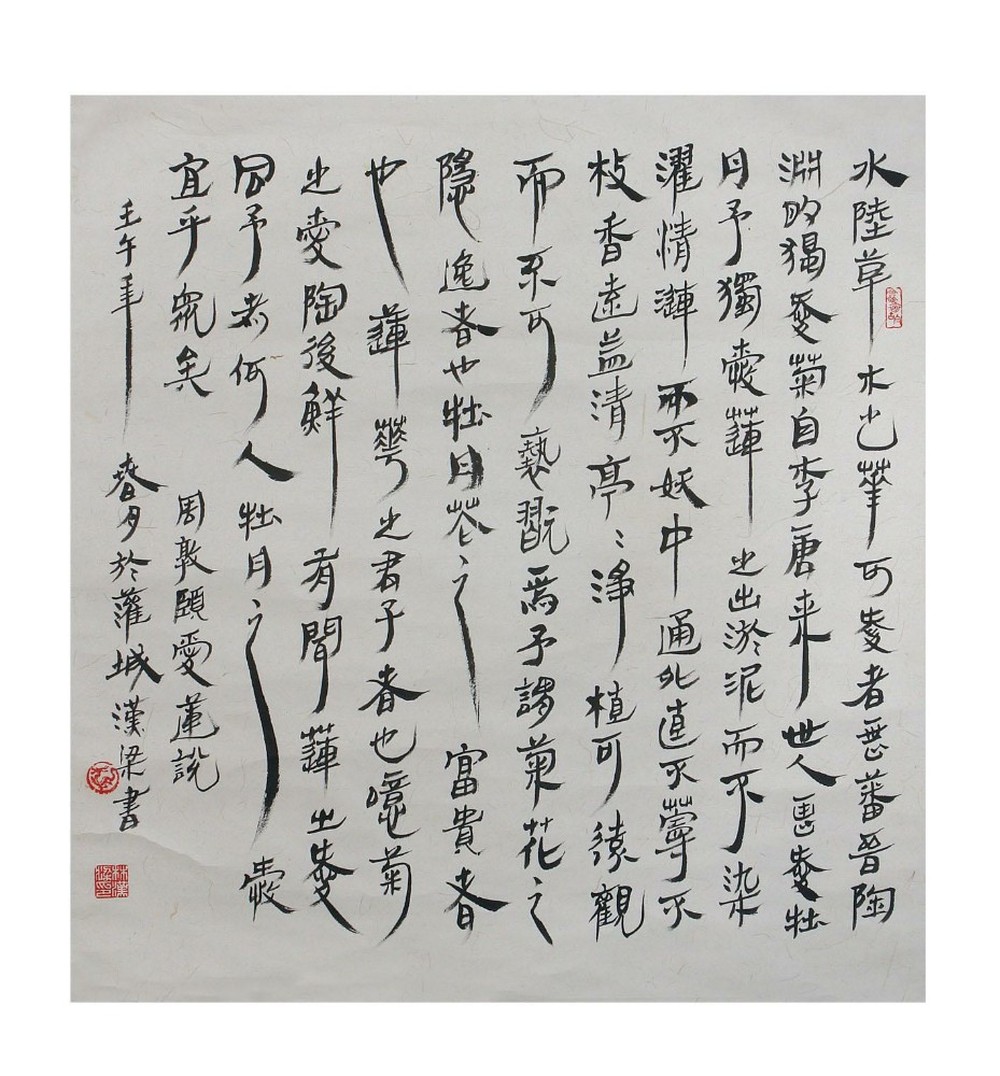 水陸草木之華可愛者甚蕃晉陶
淵明獨愛菊自李唐来世人甚愛牡
丹予獨愛蓮之出淤泥而不染
濯清漣而不妖中通外直不蔓不
枝香遠益清亭〻淨植可遠觀
而不可褻翫焉予謂菊花之
隱逸者也牡丹花之富貴者
也蓮華之君子者也噫菊
之愛陶後鮮有聞蓮之愛
同予者何人牡丹之愛
宜乎眾矣
周敦頤愛蓮説
壬午年春月於城漢梁書
林漢梁印